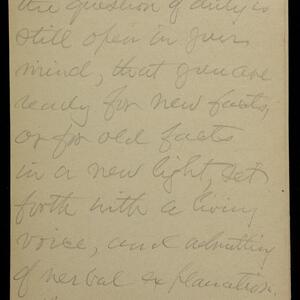 the question of duty is
still open in your
mind, that you are
ready for new facts,
or for old facts
in a new light, set
forth with a living
voice, and admitting
of verbal explanation.